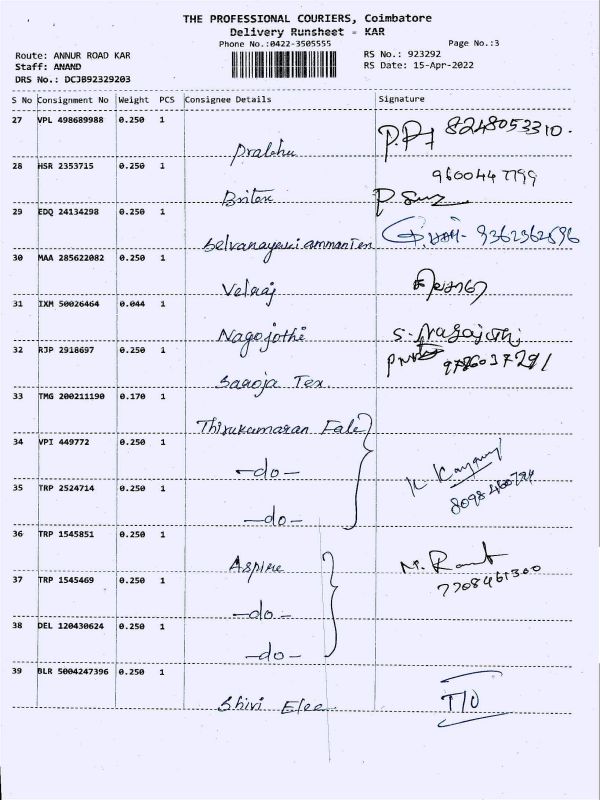 THE PROFESSIONAL COURIERS, Coimbatore
Delivery Runsheet - KAR
Phone No.:0422-3505555
Page No.:3
Route: ANNUR ROAD KAR
RS No.: 923292
Staff: ANAND
RS Date: 15-Apr-2022
DRS No.: DCJB92329203
S No Consignment No Weight PCS Consignee Details Signature
27 VPL 498689988 0.250 1
Prabhu 8248053310.
28 HSR 2353715 0.250 1
9600447799
Britex
29 EDQ 24134298 0.250 1
Selvanayaki amman Tex 9362362596
30 MAA 285622082 0.250 1
Velraj
31 IXM 50026464 0.044 1
Nagojothi S. Nagajothi
32 RJP 2918697 0.250 1
Saroja Tex.
33 TMG 200211190 0.170 1
Thirukumaran Fab
34 VPI 449772 0.250 1
-do-
35 TRP 2524714 0.250 1
-do-
36 TRP 1545851 0.250 1
Aspire
7708461300
37 TRP 1545469 0.250 1
-do-
38 DEL 120430624 0.250 1
-do-
39 BLR 5004247396 0.250 1
Shivi Elec T/O